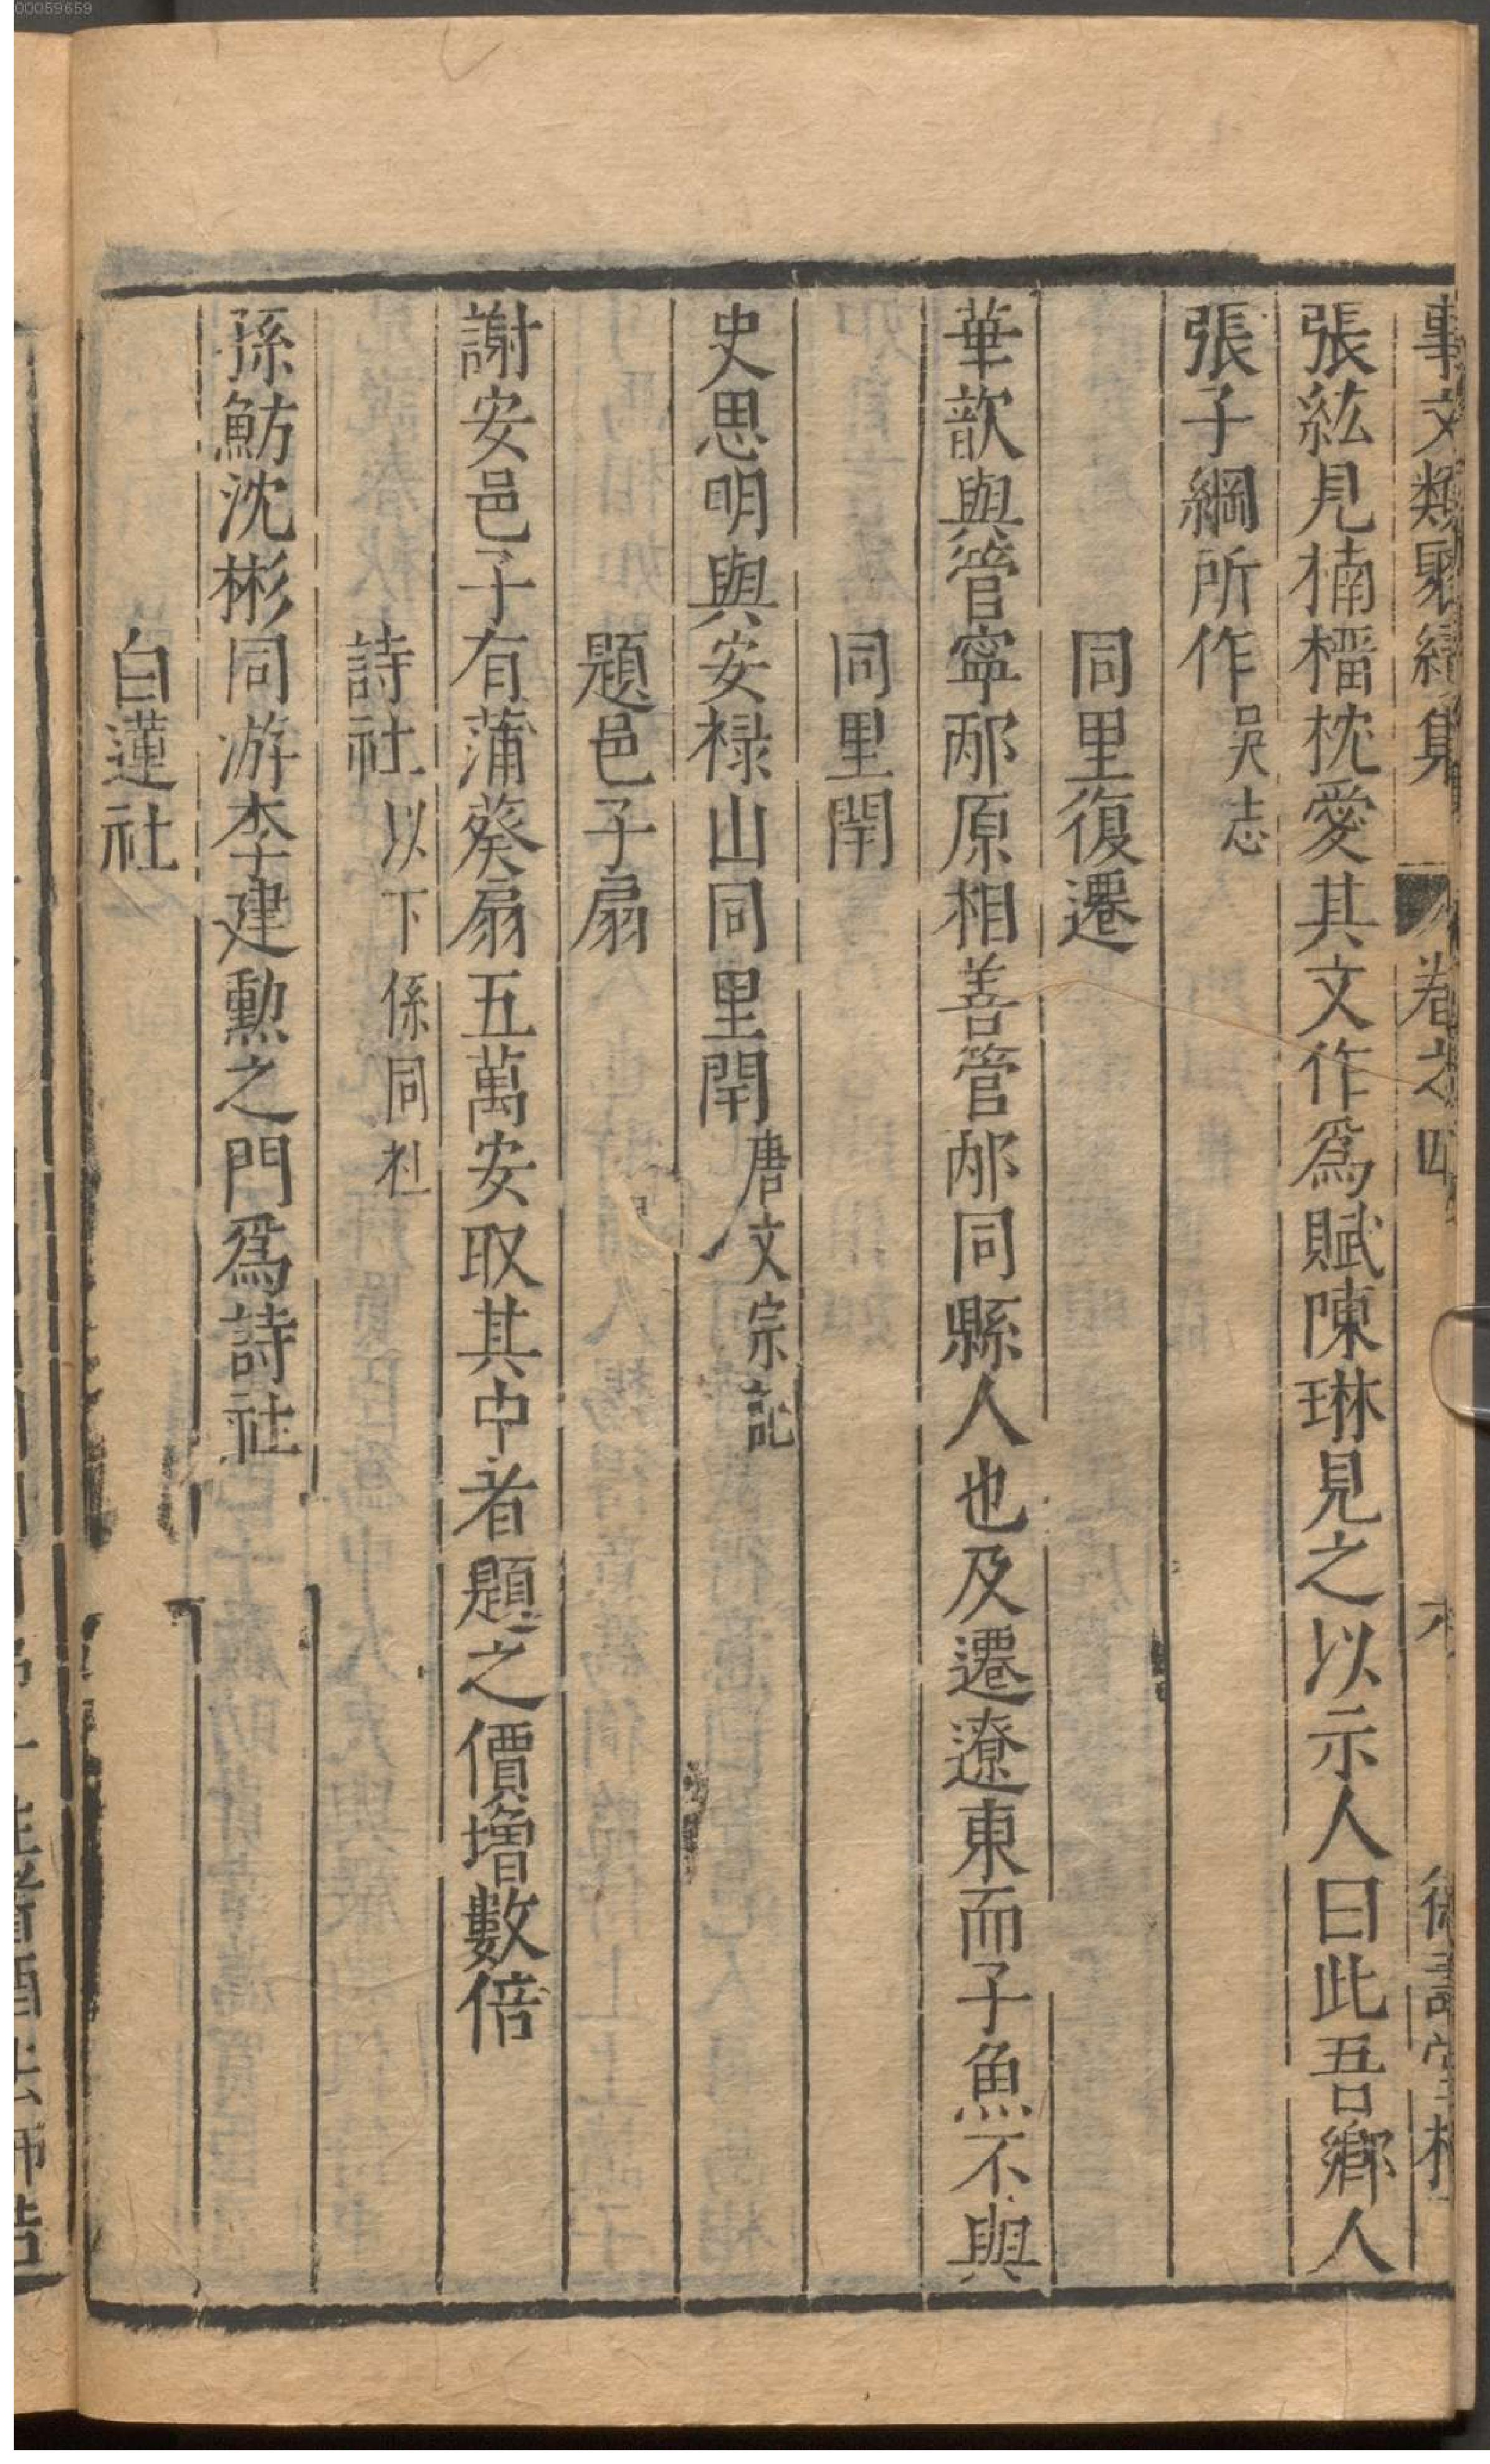 00059659
事文類聚續集 卷之四 六
張紘見楠榴枕愛其文作爲賦陳琳見之以示人曰此吾鄉人
張子綱所作吳志
同里復遷
華歆與管寧邴原相善管邴同縣人也及遷遼東而子魚不與
同里閈
史思明與安祿山同里閈唐文宗記
題邑子扇
謝安邑子有蒲葵扇五萬安取其中者題之價增數倍
詩社以下係同社
孫魴沈彬同游李建勲之門爲詩社
白蓮社